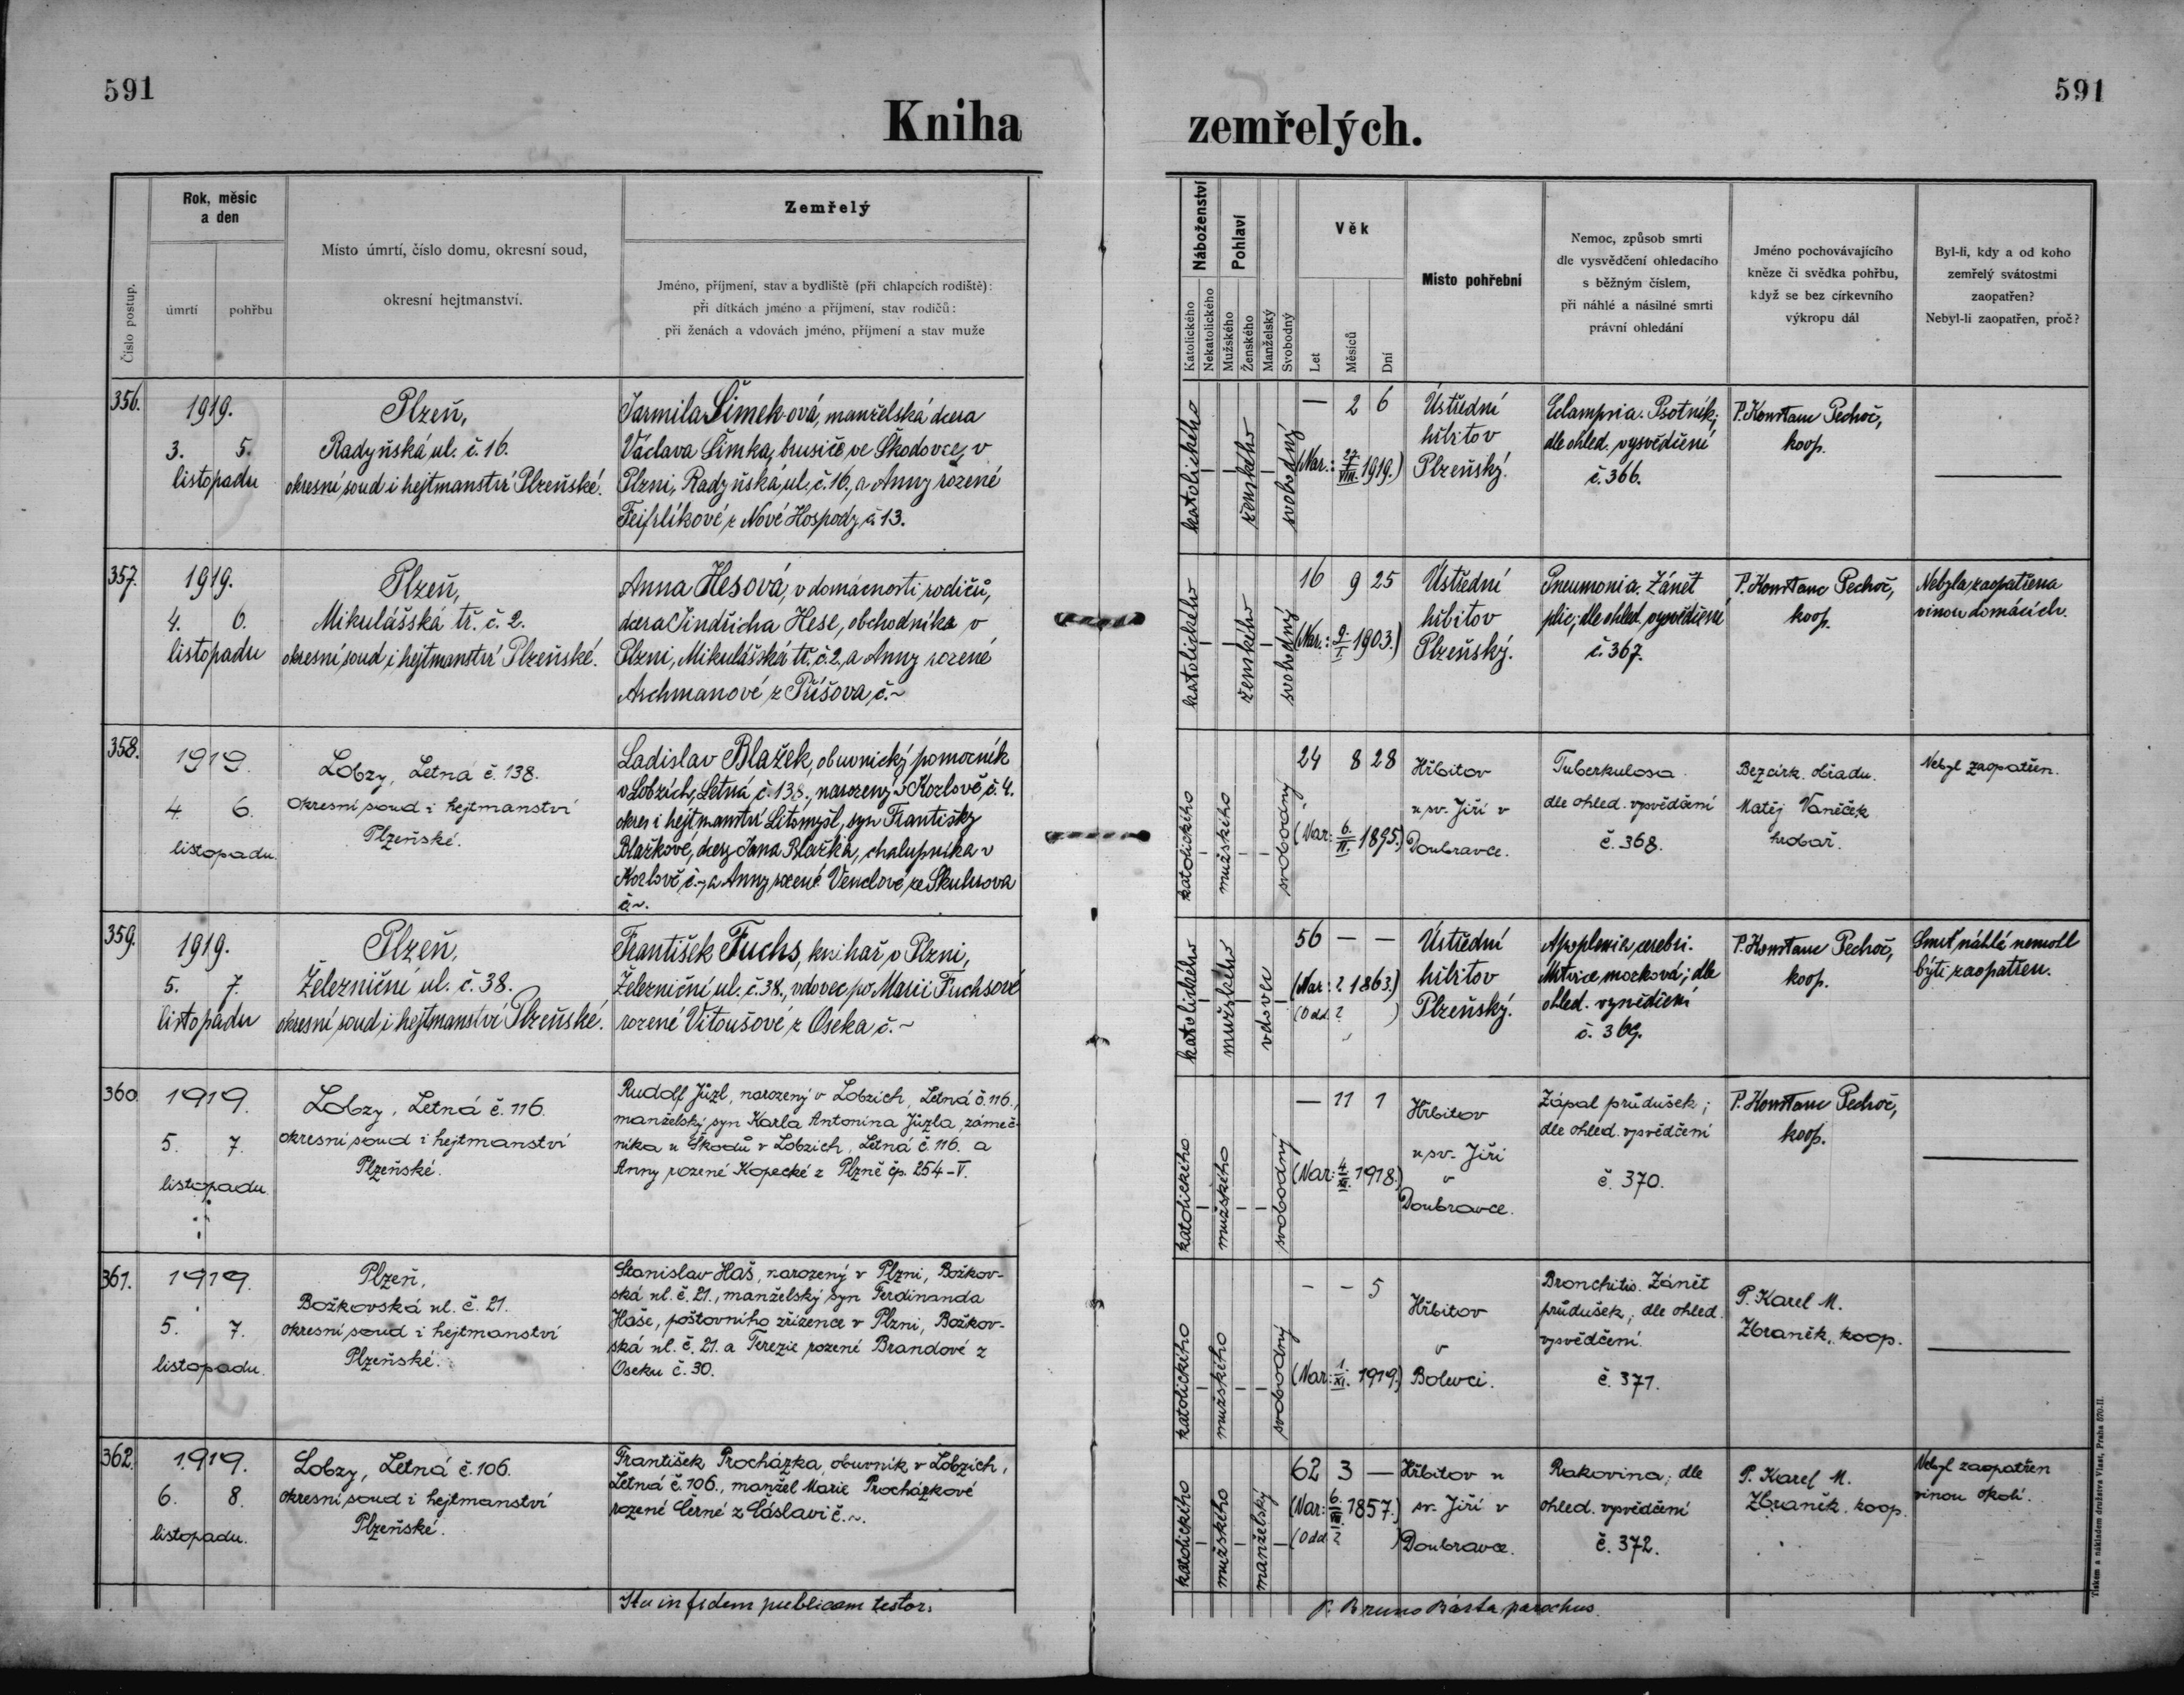 591
591
Kniha zemřelých.
Číslo postup.
Rok, měsíc
a den
úmrtí
pohřbu
Místo úmrtí, číslo domu, okresní soud,
okresní hejtmanství.
Zemřelý
Jméno, příjmení, stav a bydliště (při chlapcích rodiště):
při dítkách jméno a příjmení, stav rodičů:
při ženách a vdovách jméno, příjmení a stav muže
Náboženství
Katolického
Nekatolického
Pohlaví
Mužského
Ženského
Manželský
Svobodný
Věk
Let
Měsíců
Dní
Místo pohřební
Nemoc, způsob smrti
dle vysvědčení ohledacího
s běžným číslem,
při náhlé a násilné smrti
právní ohledání
Jméno pochovávajícího
kněze či svědka pohřbu,
když se bez církevního
výkropu dál
Byl-li, kdy a od koho
zemřelý svátostmi
zaopatřen?
Nebyl-li zaopatřen, proč?
356.
1919.
3. 5.
listopadu
Plzeň,
Radyňská ul. č. 16.
okresní soud i hejtmanství Plzeňské.
Jarmila Šimek-ová, manželská dcera
Václava Šimka, brusiče ve Škodovce, v
Plzni, Radyňská ul. č. 16., a Anny rozené
z Nové Hospody č. 13.
katolického
ženského
svobodný
— 2 6
(Nar.: 27./VIII. 1919.)
Ústřední
hřbitov
Plzeňský.
Eclampsia. Psotník;
dle ohled. vysvědčení
č. 366.
P. Konstanc Pechoč,
koop.
—
357.
1919.
4. 6.
listopadu
Plzeň,
Mikulášská tř. č. 2.
okresní soud i hejtmanství Plzeňské.
Anna Hesová, v domácnosti rodičů,
dcera Jindřicha Hese, obchodníka v
Plzni, Mikulášská tř. č. 2, a Anny rozené
Aschmanové z Příšova č. ~
katolického
ženského
svobodný
16 9 25
(Nar.: 9./I. 1903.)
Ústřední
hřbitov
Plzeňský.
Pneumonia. Zánět
plic; dle ohled. vysvědčení
č. 367.
P. Konstanc Pechoč,
koop.
Nebyla zaopatřena
vinou domácích.
358.
1919.
4. 6.
listopadu.
Lobzy, Letná č. 138.
Okresní soud i hejtmanství
Plzeňské.
Ladislav Blažek, obuvnický pomocník
v Lobzích, Letná č. 138., narozený v Kozlově č. 4.
okres i hejtmanství Litomyšl, syn Františky
Blažkové, dcery Jana Blažka, chalupníka v
Kozlově č. ~, a Anny rozené Venclové ze Skuhrova
č. ~.
katolického
mužského
svobodný
24 8 28
(Nar: 6./II. 1895.)
Hřbitov
u sv. Jiří v
Doubravce.
Tuberkulosa.
dle ohled. vysvědčení
č. 368.
Bez církv. obřadu.
Matěj Vaněček
hrobař.
Nebyl zaopatřen.
359.
1919.
5. 7.
listopadu
Plzeň,
Železniční ul. č. 38.
okresní soud i hejtmanství Plzeňské.
František Fuchs, knihař v Plzni,
Železniční ul. č. 38., vdovec po Marii Fuchsové
rozené Vitoušové z Oseka č. ~
katolického
mužského
vdovec
56 — —
(Nar: ? 1863.)
(Odd. ? )
Ústřední
hřbitov
Plzeňský.
Apoplexia cerebri.
Mrtvice mozková; dle
ohled. vysvědčení
č. 369.
P. Konstanc Pechoč,
koop.
Smrť náhlá nemohl
býti zaopatřen.
360.
1919.
5. 7.
listopadu.
Lobzy, Letná č. 116.
okresní soud i hejtmanství
Plzeňské.
Rudolf Jůzl, narozený v Lobzích, Letná č. 116.,
manželský syn Karla Antonína Jůzla, zámeč-
níka u Škodů v Lobzích, Letná č. 116. a
Anny rozené Kopecké z Plzně čp. 254-V.
katolického
mužského
svobodný
— 11 1
(Nar: 4./XI. 1918.)
Hřbitov
u sv. Jiří
v
Doubravce.
Zápal průdušek;
dle ohled. vysvědčení
č. 370.
P. Konstanc Pechoč,
koop.
—
361.
1919.
5. 7.
listopadu.
Plzeň,
Božkovská ul. č. 21.
okresní soud i hejtmanství
Plzeňské.
Stanislav Haš, narozený v Plzni, Božkov-
ská ul. č. 21., manželský syn Ferdinanda
Haše, poštovního zřízence v Plzni, Božkov-
ská ul. č. 21. a Terezie rozené Brandové z
Oseku č. 30.
katolického
mužského
svobodný
— — 5
(Nar: 1./XI. 1919.)
Hřbitov
v
Bolevci.
Bronchitis. Zánět
průdušek; dle ohled.
vysvědčení
č. 371.
P. Karel M.
Zbraněk, koop.
—
362.
1919.
6. 8.
listopadu.
Lobzy, Letná č. 106.
okresní soud i hejtmanství
Plzeňské.
František Procházka, obuvník v Lobzích,
Letná č. 106., manžel Marie Procházkové
rozené Černé z Čáslavi č. ~.
katolického
mužského
manželský
62 3 —
(Nar: 6./VIII. 1857.)
(Odd. ? )
Hřbitov u
sv. Jiří v
Doubravce.
Rakovina; dle
ohled. vysvědčení
č. 372.
P. Karel M.
Zbraněk, koop.
Nebyl zaopatřen
vinou okolí.
Ita in fidem publicam testor.
P. Bruno Bárta parochus.
Tiskem a nákladem družstva Vlast, Praha 570-II.